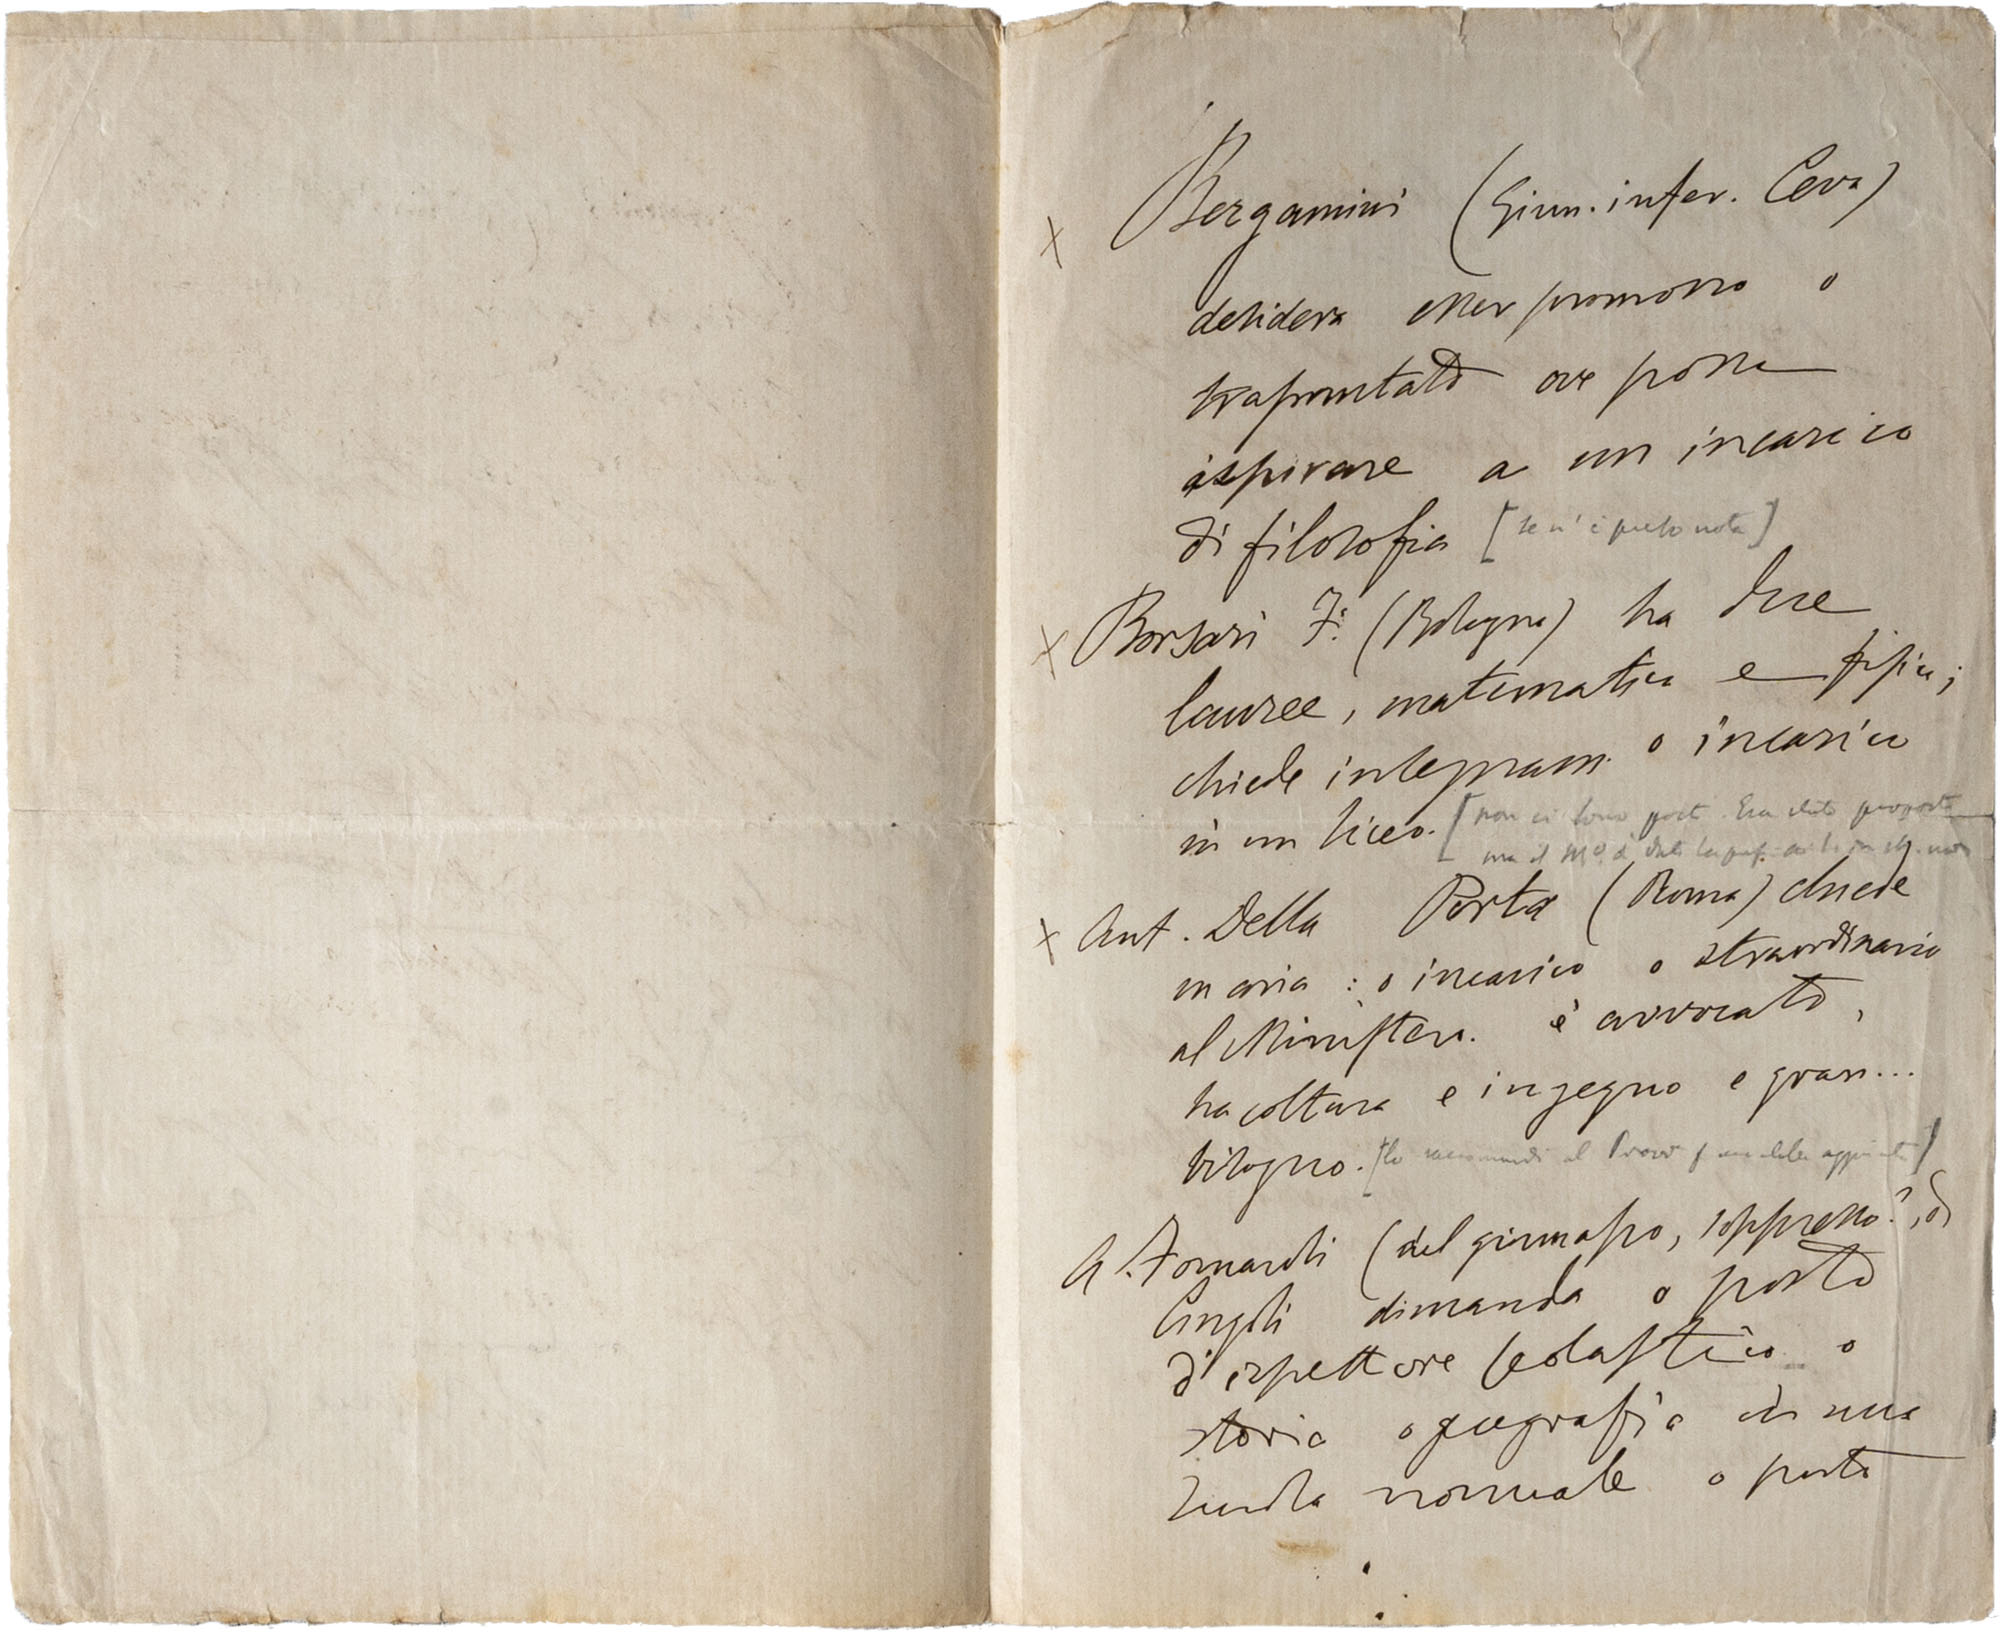 x Bergamini (Ginn. infer. Ceva)
desidera esser promosso o
traslocato ove possa
aspirare a un incarico
di filosofia [se n'è preso nota]
x Borsari F. (Bologna) ha due
lauree, matematica e fisica;
chiede integram. o incarico
in un liceo. [non ci sono posti. Era stato proposto
ma il M.º
x Ant. Della Porta (Roma) chiede
: o incarico o straordinario
al Ministero. è avvocato,
ha coltura e ingegno e gran...
bisogno. [lo raccomandi al
A. Fornaroli (del ginnasio, soppresso?, di
Cingoli dimanda o posto
d'ispettore scolastico o
storia o geografia in una
scuola normale o posto